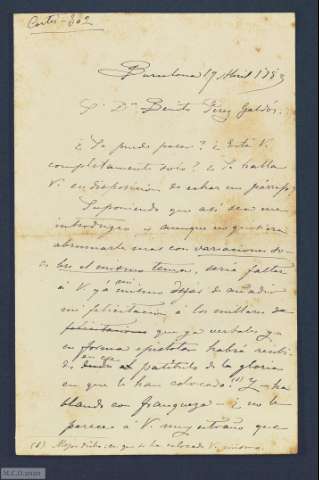 Cortés-302
Barcelona 17 Abril 1883
Sr. Dn. Benito Pérez Galdós.
¿Se puede pasar? ¿Está V.
completamente solo? ¿Se halla
V. en disposicion de echar un párrafo?
Suponiendo que así sea me
introduzco y aunque no quisiera
abrumarle mas con variaciones so-
bre el mismo tema, sería faltar
á V. y á mí mismo dejar de añadir
mi felicitacion á los millares de
felicitaciones que ya verbales ya
en forma epistolar habrá recibi-
do, desde el
en ese pedestal de la gloria
en que le han colocado (1) Y ha-
blando con franqueza - ¿no le
parece á V. muy extraño que
(1) Mejor dicho: en que se ha colocado V. mismo.
M.C.D. 2022